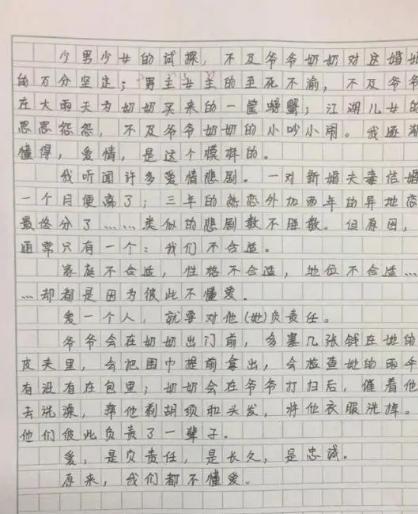 少男少女的试探,不及爷爷奶奶对这婚姻
的万分坚定;男主女主的至死不渝,不及爷爷
在大雨天为奶奶买来的一筐螃蟹;江湖儿女的
恩恩怨怨,不及爷爷奶奶的小吵小闹。我逐渐
懂得,爱情,是这个模样的。
我听闻许多爱情悲剧。一对新婚夫妻结婚
一个月便离了;三年的热恋外加两年的异地恋
最终分了……类似的悲剧数不胜数。但原因,
通常只有一个:我们不合适。
家庭不合适,性格不合适,地位不合适…
…却都是因为彼此不懂爱。
爱一个人,就要对他(她)负责任。
爷爷会在奶奶出门前,多塞几张钱在她的
皮夹里,会把围巾提前拿出,会检查她的雨伞
有没有在包里;奶奶会在爷爷打扫后,催着他
去洗澡,帮他剃胡须和头发,将他衣服洗掉。
他们彼此负责了一辈子。
爱,是负责任,是长久,是忠诚。
原来,我们都不懂爱。